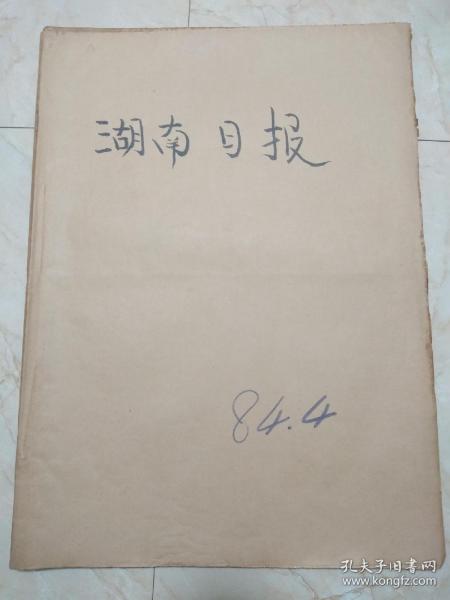 湖南日报
84.4
孔夫子旧书网
www.kongfz.com